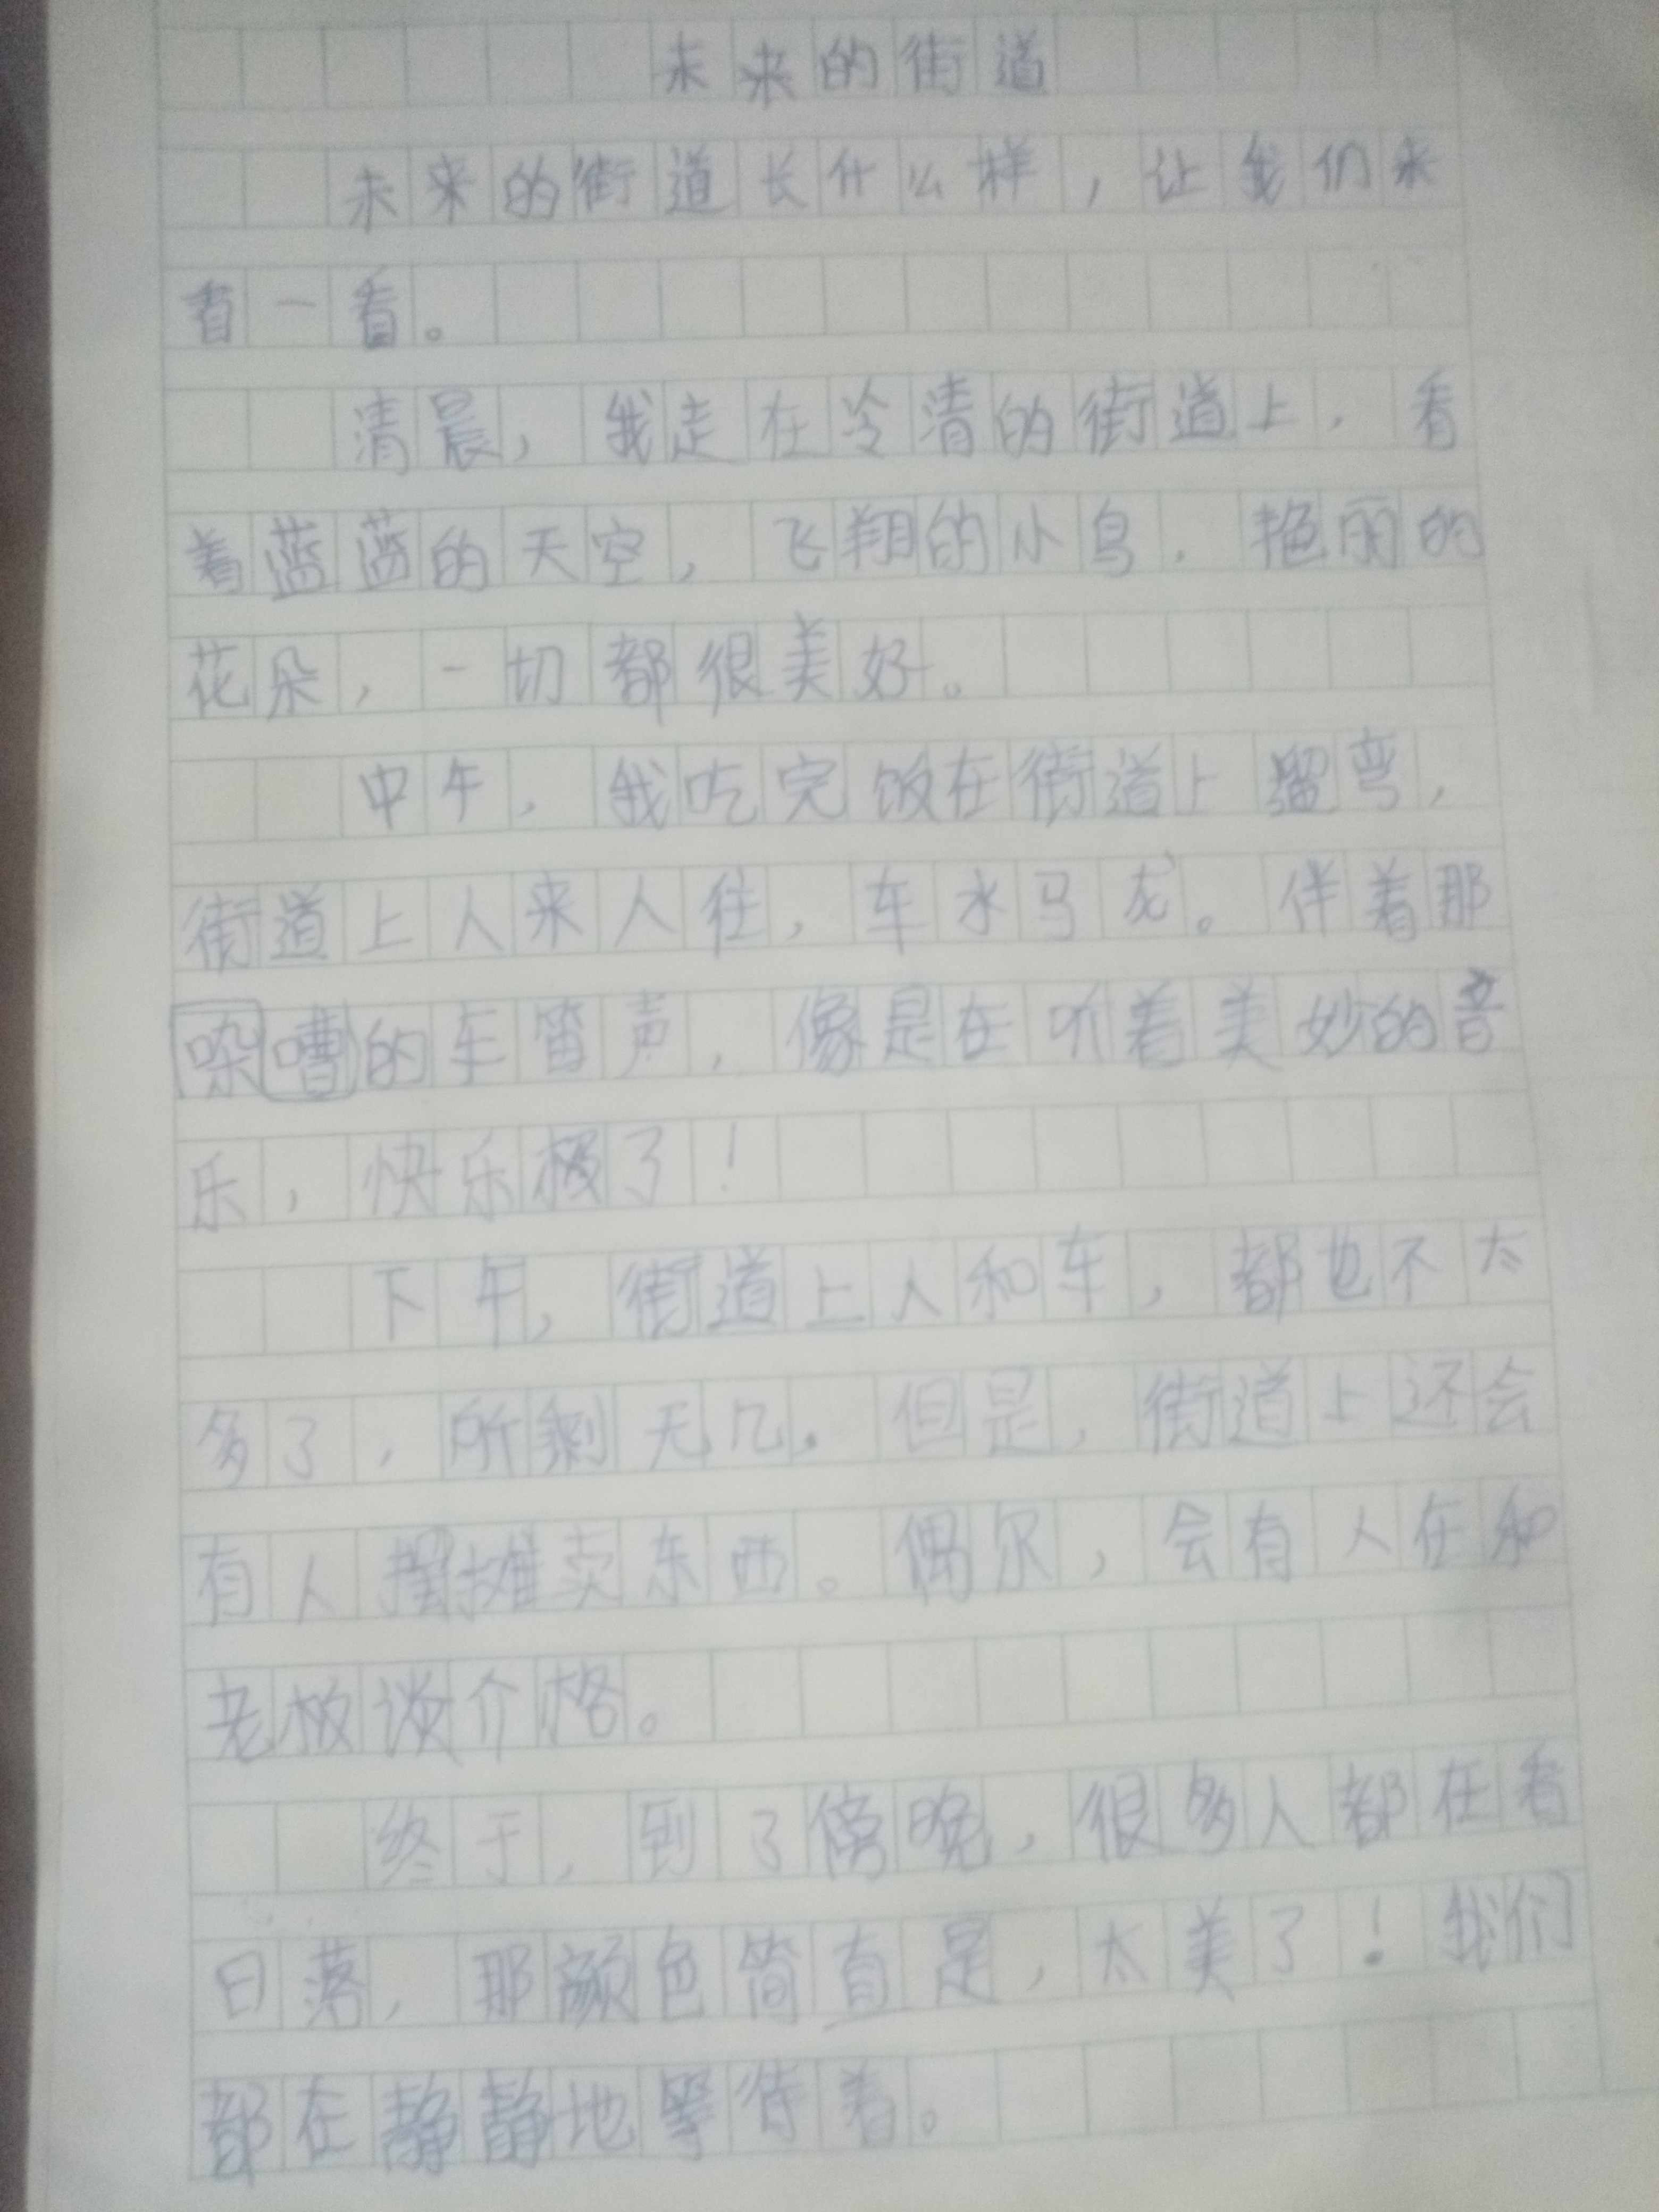 未来的街道
未来的街道长什么样，让我们来
看一看。
清晨，我走在冷清的街道上，看
着蓝蓝的天空，飞翔的小鸟，艳丽的
花朵，一切都很美好。
中午，我吃完饭在街道上遛弯，
街道上人来人往，车水马龙。伴着那
噪嘈的车笛声，像是在听着美妙的音
乐，快乐极了！
下午，街道上人和车，都也不太
多了，所剩无几。但是，街道上还会
有人摆摊卖东西。偶尔，会有人在和
老板谈介格。
终于，到了傍晚，很多人都在看
日落，那颜色简直是，太美了！我们
都在静静地等待着。